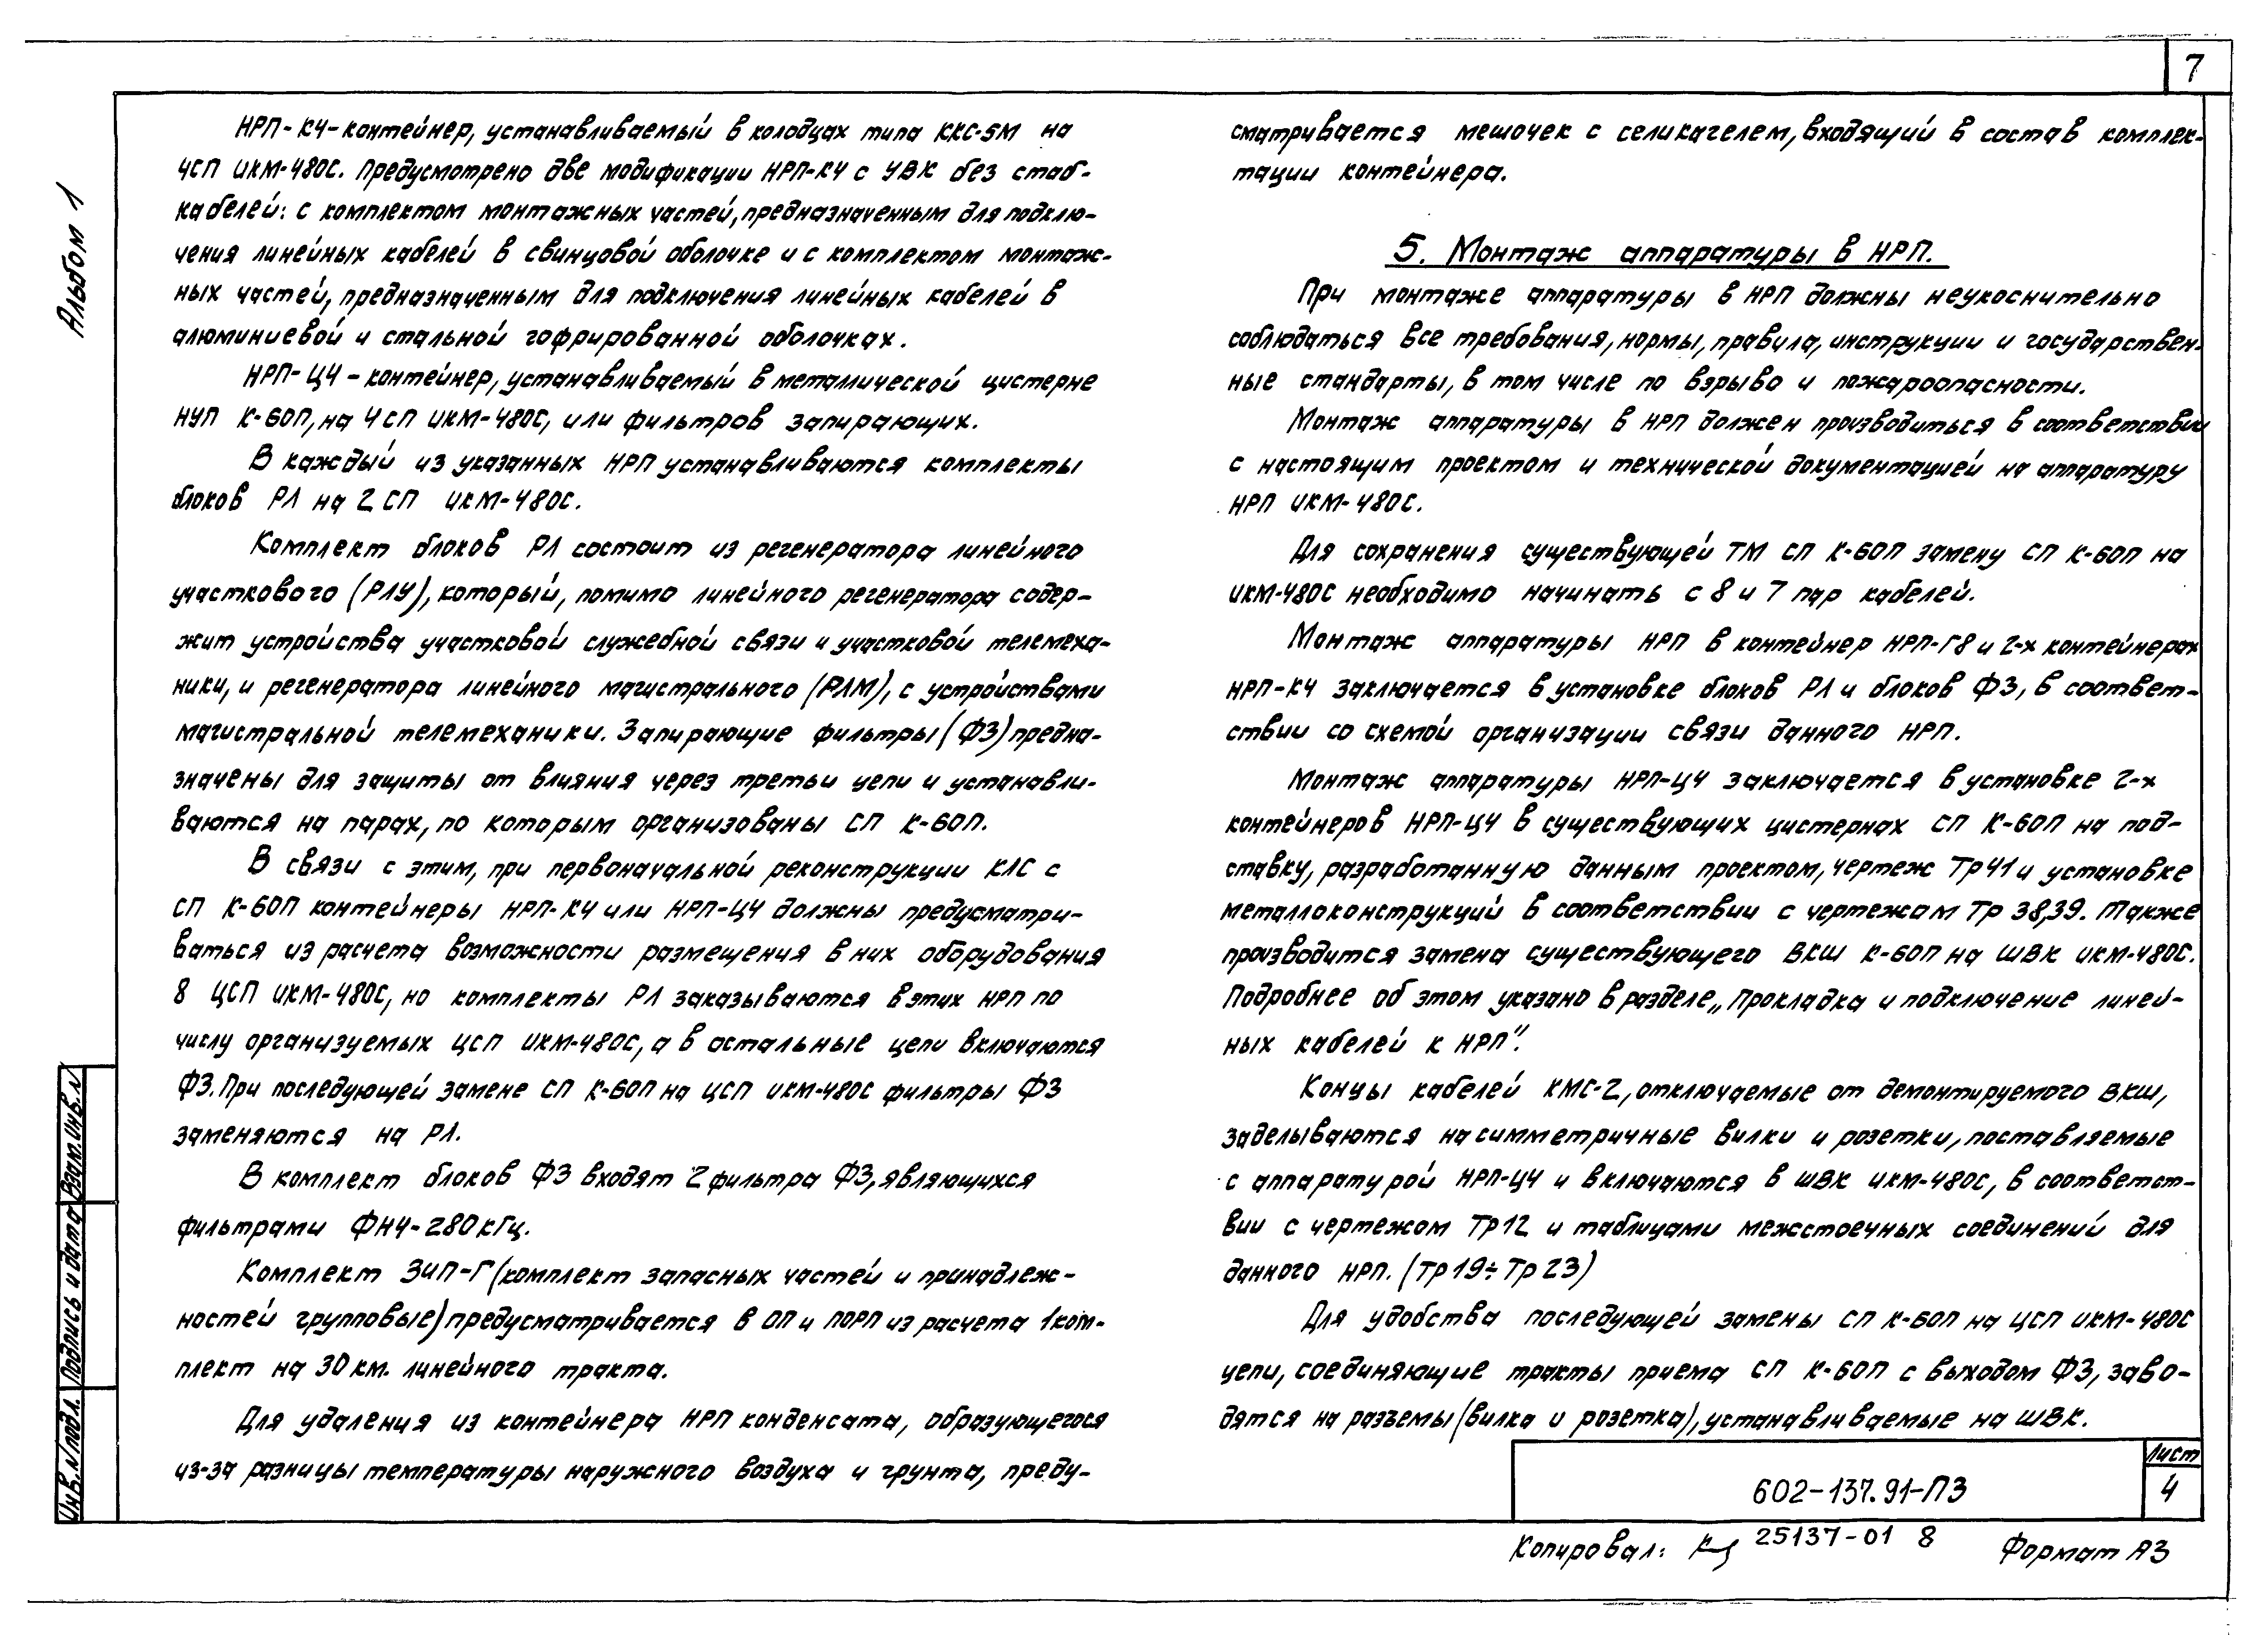 7
Альбом 1
НРП-К4-контейнер, устанавливаемый в колодцах типа ККС-5М на
4СП ИКМ-480С. Предусмотрено две модификации НРП-К4 с УВК без стаб-
кабелей: с комплектом монтажных частей, предназначенным для подклю-
чения линейных кабелей в свинцовой оболочке и с комплектом монтаж-
ных частей, предназначенным для подключения линейных кабелей в
алюминиевой и стальной гофрированной оболочках.
НРП-Ц4-контейнер, устанавливаемый в металлической цистерне
НУП К-60П, на 4 СП ИКМ-480С, или фильтров запирающих.
В каждый из указанных НРП устанавливаются комплекты
блоков РЛ на 2 СП ИКМ-480С.
Комплект блоков РЛ состоит из регенератора линейного
участкового (РЛУ), который, помимо линейного регенератора содер-
жит устройства участковой служебной связи и участковой телемеха-
ники, и регенератора линейного магистрального (РЛМ), с устройствами
магистральной телемеханики. Запирающие фильтры (ФЗ) предна-
значены для защиты от влияния через третьи цепи и устанавли-
ваются на парах, по которым организованы СП К-60П.
В связи с этим, при первоначальной реконструкции КЛС с
СП К-60П контейнеры НРП-К4 или НРП-Ц4 должны предусматри-
ваться из расчета возможности размещения в них оборудования
8 ЦСП ИКМ-480С, но комплекты РЛ заказываются в этих НРП по
числу организуемых ЦСП ИКМ-480С, а в остальные цепи включаются
ФЗ. При последующей замене СП К-60П на ЦСП ИКМ-480С фильтры ФЗ
заменяются на РЛ.
В комплект блоков ФЗ входят 2 фильтра ФЗ, являющихся
фильтрами ФНЧ-280кГц.
Комплект ЗИП-Г (комплект запасных частей и принадлеж-
ностей групповые) предусматривается в ОП и ПОРП из расчета 1 ком-
плект на 30 км. линейного тракта.
Для удаления из контейнера НРП конденсата, образующегося
из-за разницы температуры наружного воздуха и грунта, преду-
сматривается мешочек с селикагелем, входящий в состав комплек-
тации контейнера.
5. Монтаж аппаратуры в НРП.
При монтаже аппаратуры в НРП должны неукоснительно
соблюдаться все требования, нормы, правила, инструкции и государствен-
ные стандарты, в том числе по взрыво и пожароопасности.
Монтаж аппаратуры в НРП должен производиться в соответствии
с настоящим проектом и технической документацией на аппаратуру
НРП ИКМ-480С.
Для сохранения существующей ТМ СП К-60П замену СП К-60П на
ИКМ-480С необходимо начинать с 8 и 7 пар кабелей.
Монтаж аппаратуры НРП в контейнер НРП-Г8 и 2-х контейнерах
НРП-К4 заключается в установке блоков РЛ и блоков ФЗ, в соответ-
ствии со схемой организации связи данного НРП.
Монтаж аппаратуры НРП-Ц4 заключается в установке 2-х
контейнеров НРП-Ц4 в существующих цистернах СП К-60П на под-
ставку, разработанную данным проектом, чертеж Тр41 и установке
металлоконструкций в соответствии с чертежам Тр 38,39. Также
производится замена существующего ВКШ К-60П на ШВК ИКМ-480С.
Подробнее об этом указано в разделе „Прокладка и подключение линей-
ных кабелей к НРП".
Концы кабелей КМС-2, отключаемые от демонтируемого ВКШ,
заделываются на симметричные вилки и розетки, поставляемые
с аппаратурой НРП-Ц4 и включаются в ШВК ИКМ-480С, в соответст-
вии с чертежом Тр12 и таблицами межстоечных соединений для
данного НРП. (Тр19÷Тр23)
Для удобства последующей замены СП К-60П на ЦСП ИКМ-480С
цепи, соединяющие тракты приема СП К-60П с выходом ФЗ, заво-
дятся на разъемы (вилка и розетка), устанавливаемые на ШВК.
Инв.N подл. Подпись и дата Взам.инв.N
602-137.91-ПЗ
Лист
4
Копировал: 25137-01 8 Формат А3